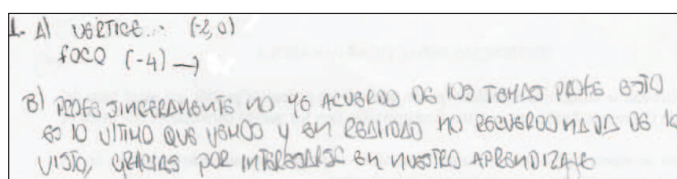 1. A) VERTICE.. (-2,0)
foco (-4) →
B) PROFE SINCERAMENTE NO ME ACUERDO DE LOS TEMAS PROFE ESTO
ES LO ULTIMO QUE VEMOS Y EN REALIDAD NO RECUERDO NADA DE LO
VISTO, GRACIAS POR INTERESARSE EN NUESTRO APRENDIZAJE